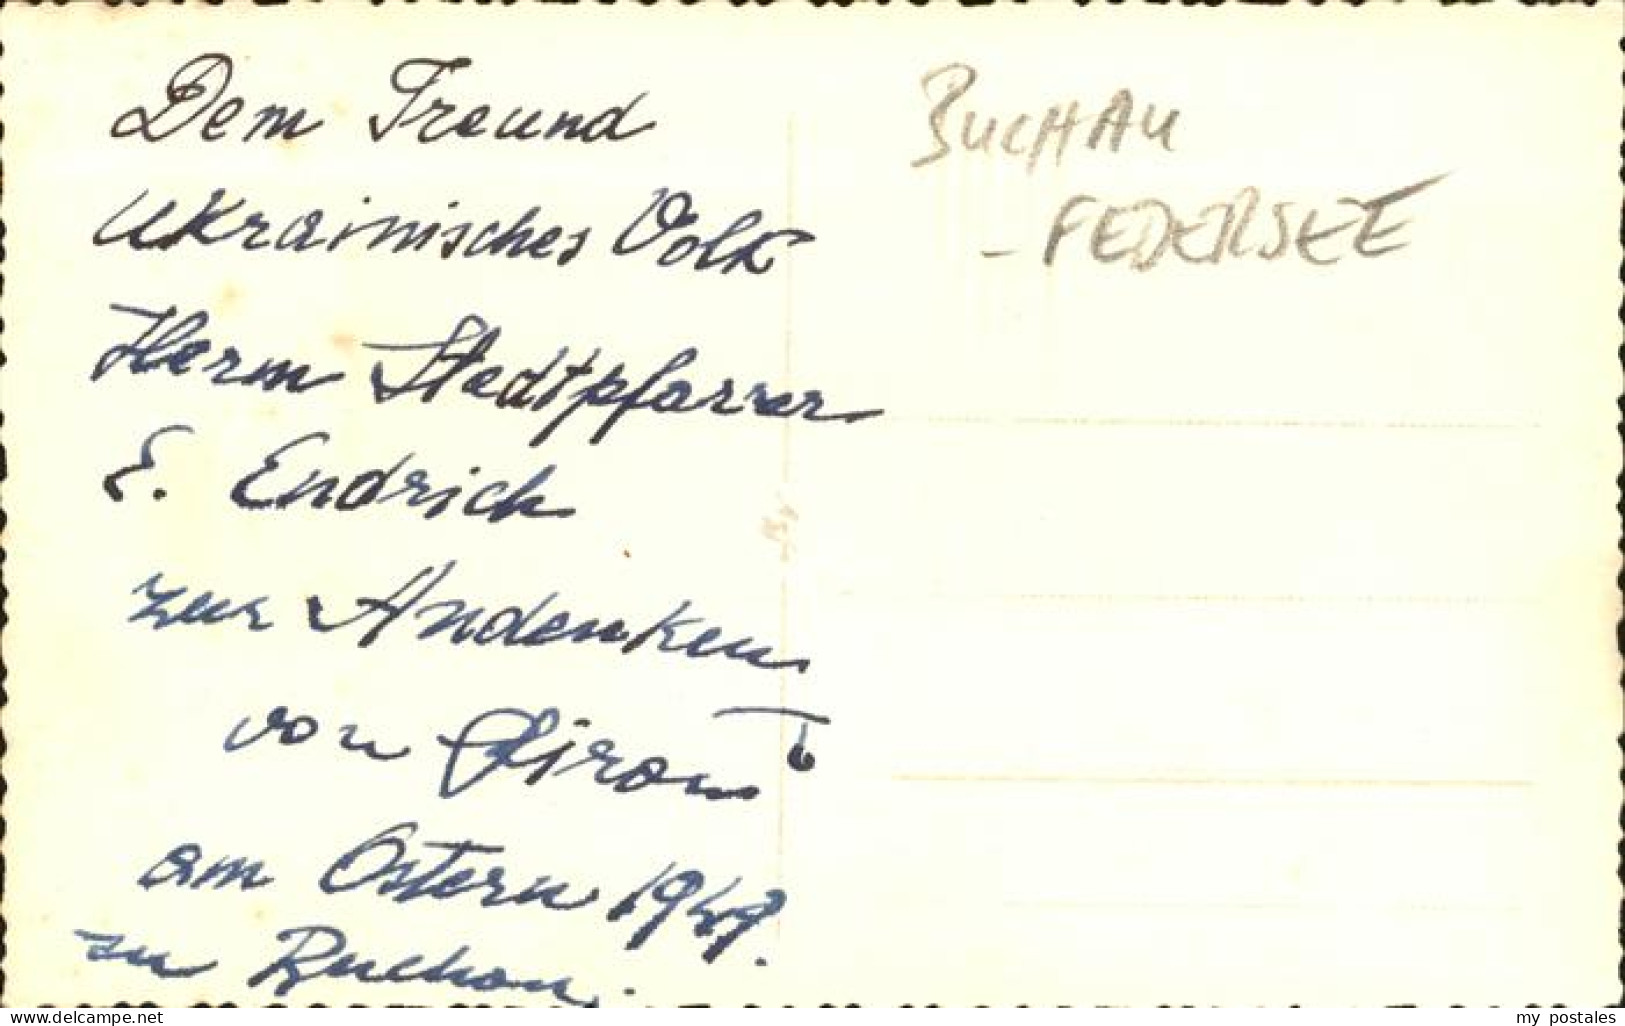 Dem Freund
Ukrainisches Volk
Herrn Stadtpfarrer
E. Endrich
zur Andenken
von
am Ostern 1947.
zu Buchau.
BUCHAU
- FEDERSEE
my_postales